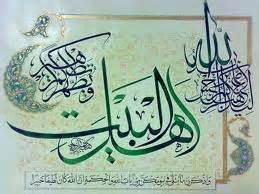 الله
ليذهب عنكم الرجس
اهل البيت
ويطهركم
واذكرن ما يتلى في بيوتكن من آيات الله والحكمة إن الله كان لطيفا خبيرا